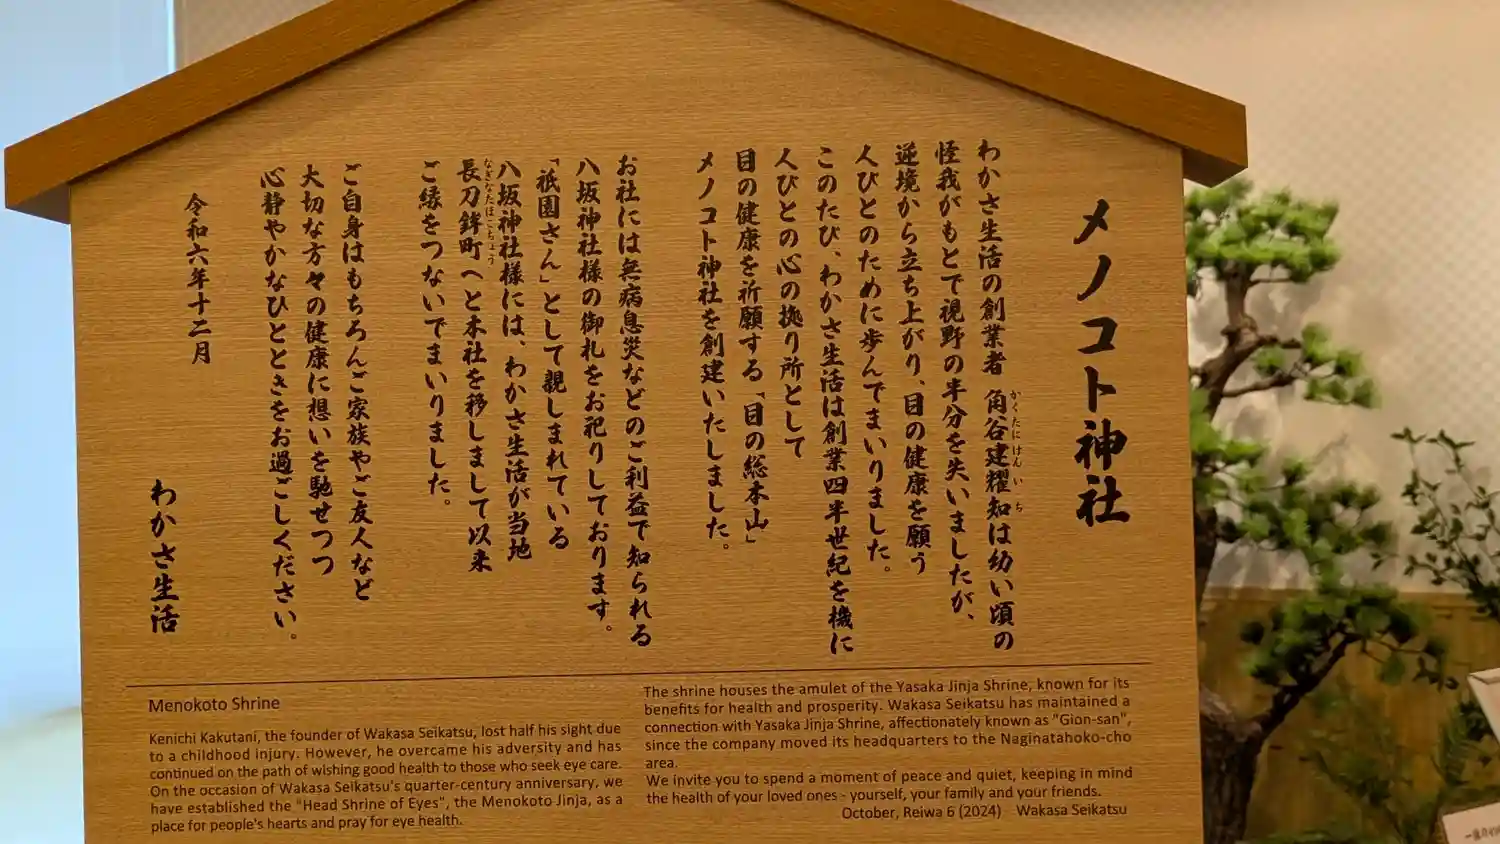 メノコト神社
わかさ生活の創業者 角谷建耀知は幼い頃の
かくたにけんいち
怪我がもとで視野の半分を失いましたが、
逆境から立ち上がり、目の健康を願う
人びとのために歩んでまいりました。
このたび、わかさ生活は創業四半世紀を機に
人びとの心の拠り所として
目の健康を祈願する「目の総本山」
メノコト神社を創建いたしました。
お社には無病息災などのご利益で知られる
八坂神社様の御札をお祀りしております。
「祇園さん」として親しまれている
八坂神社様には、わかさ生活が当地
長刀鉾町へと本社を移しまして以来
なぎなたほこちょう
ご縁をつないでまいりました。
ご自身はもちろんご家族やご友人など
大切な方々の健康に想いを馳せつつ
心静やかなひとときをお過ごしください。
令和六年十二月
わかさ生活
Menokoto Shrine
Kenichi Kakutani, the founder of Wakasa Seikatsu, lost half his sight due
to a childhood injury. However, he overcame his adversity and has
continued on the path of wishing good health to those who seek eye care.
On the occasion of Wakasa Seikatsu's quarter-century anniversary, we
have established the "Head Shrine of Eyes", the Menokoto Jinja, as a
place for people's hearts and pray for eye health.
The shrine houses the amulet of the Yasaka Jinja Shrine, known for its
benefits for health and prosperity. Wakasa Seikatsu has maintained a
connection with Yasaka Jinja Shrine, affectionately known as "Gion-san",
since the company moved its headquarters to the Naginatahoko-cho
area.
We invite you to spend a moment of peace and quiet, keeping in mind
the health of your loved ones - yourself, your family and your friends.
October, Reiwa 6 (2024) Wakasa Seikatsu